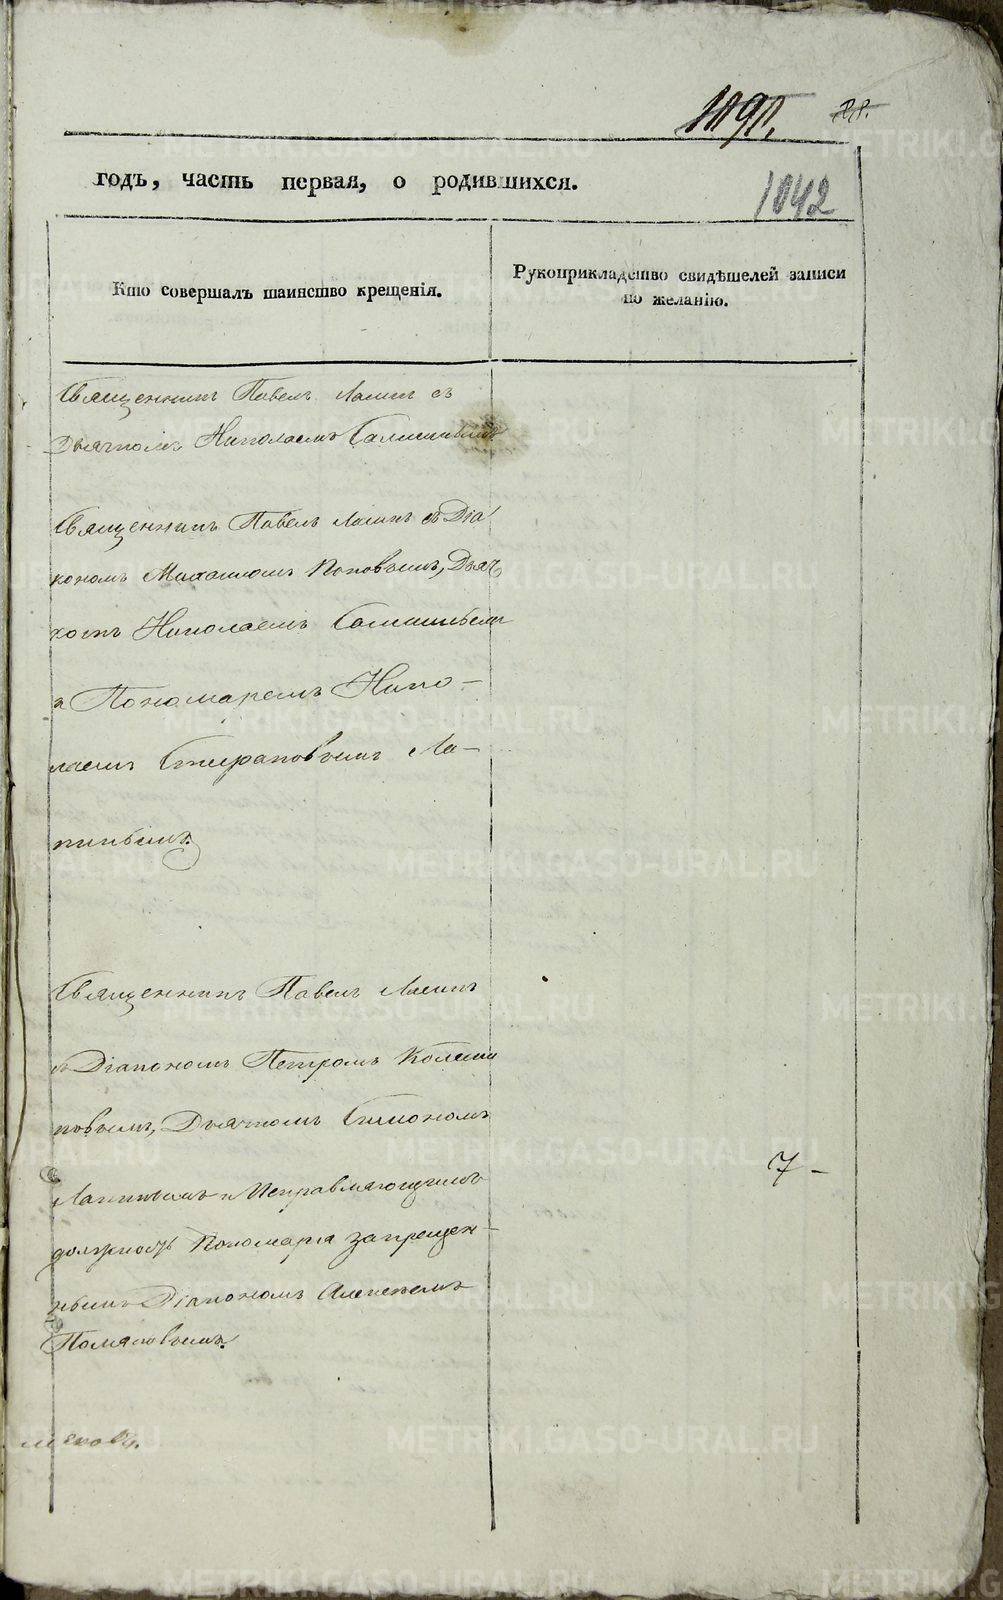 METRIKI.GASO-URAL.RU
1042
годъ, часть первая, о родившихся.
Кто совершалъ таинство крещенія.
Рукоприкладство свидѣтелей записи
по желанію.
Священникъ Павелъ Ляпинъ съ
Дьячкомъ Николаемъ
Священникъ Павелъ Ляпинъ съ Діа
кономъ Михаиломъ Поповымъ, Дьяч
комъ Николаемъ
и Пономаремъ Нико-
лаемъ Ла-
пинымъ.
Священникъ Павелъ Ляпинъ
съ Діакономъ Петромъ
Дьячкомъ Симономъ
Лапинымъ и Исправляющимъ
должность Пономаря запрещен-
нымъ Діакономъ Алексѣемъ
Поляковымъ.
7 -